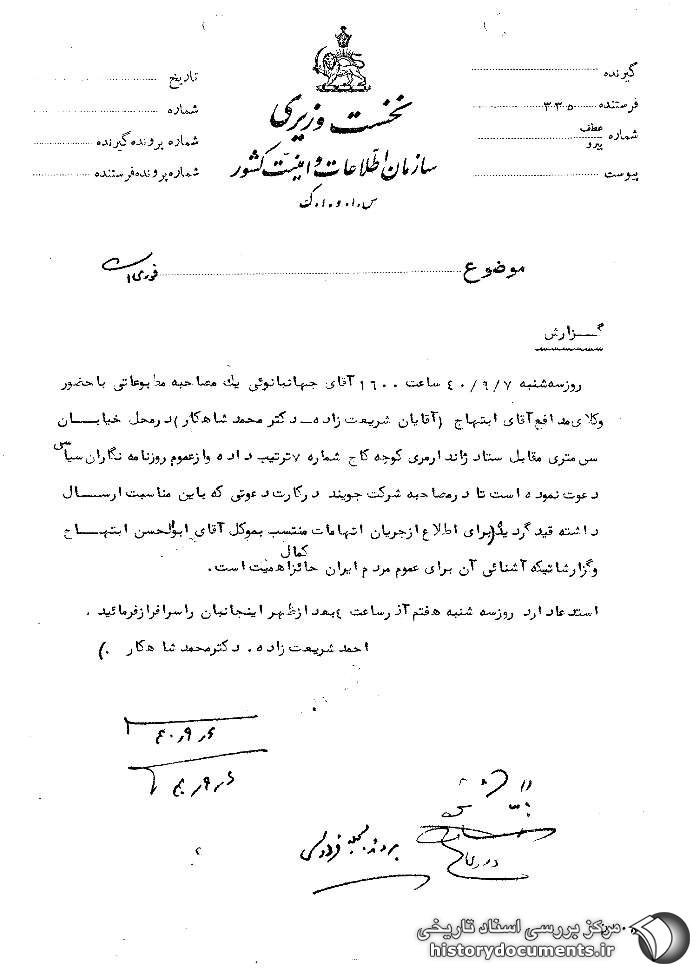 نخست وزیری
سازمان اطلاعات و امنیت کشور
س.ا.و.ا.ک
گیرنده
فرستنده ۳۳۵
شماره عطف
پیرو
پیوست
تاریخ
شماره
شماره پرونده گیرنده
شماره پرونده فرستنده
موضوع فوری است
گزارش
روز سه شنبه ۴۰/۹/۷ ساعت ۱۶۰۰ آقای جهانبانوئی یك مصاحبه مطبوعاتی با حضور
وکلای مدافع آقای ابتهاج (آقایان شریعت زاده ـ دکتر محمد شاهکار) در محل خیابان
سی متری مقابل ستاد ژاندارمری کوچه کاج شماره ۷ ترتیب داده و از عموم روزنامه نگاران سیاسی
دعوت نموده است تا در مصاحبه شرکت جویند در کارت دعوتی که باین مناسبت ارسال
داشته قید گردیده (برای اطلاع از جریان اتهامات منتسب بموکل آقای ابوالحسن ابتهاج
و گزارشاتیکه آشنائی آن برای عموم مردم ایران کمال حائز اهمیت است .
استدعا دارد روز سه شنبه هفتم آذر ساعت ٤ بعد از ظهر اینجانبان را سرافراز فرمائید .
احمد شریعت زاده . دکتر محمد شاهکار .)
۴۰٫۹٫۶
۴۰٫۹٫۶
پرونده مجله فردوسی
مرکز بررسی اسناد تاریخی
historydocuments.ir